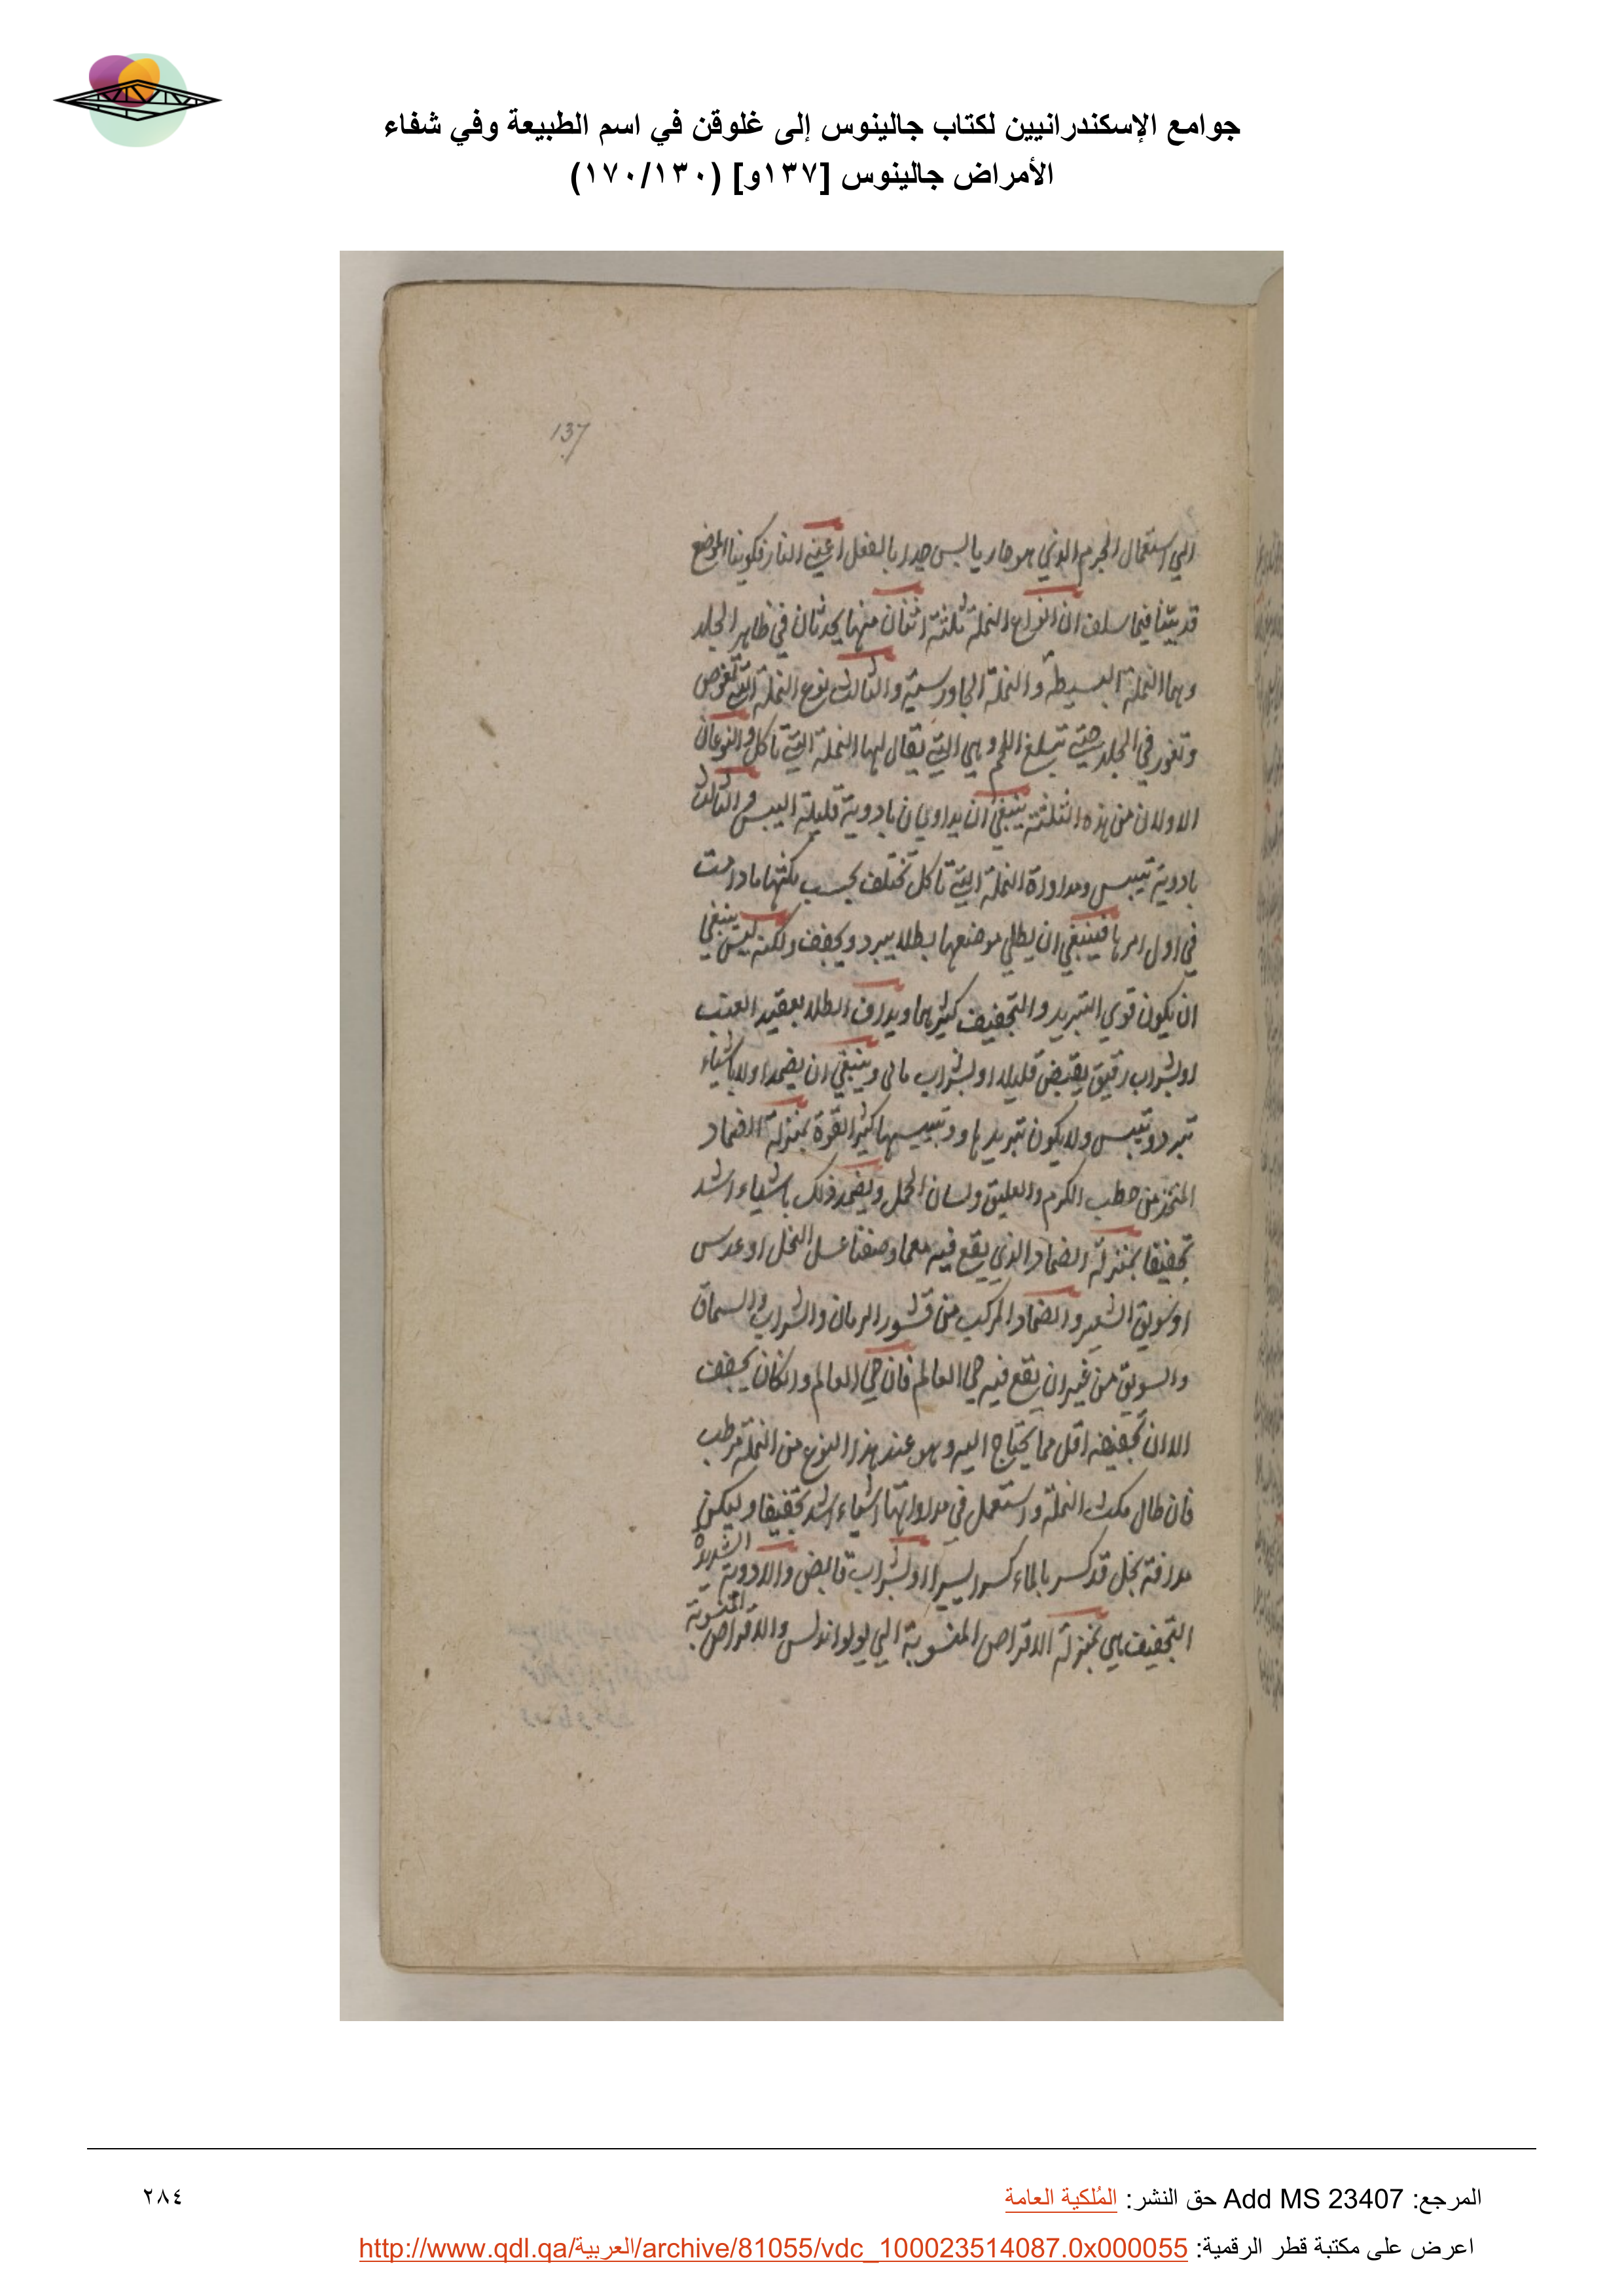 جوامع الإسكندرانيين لكتاب جالينوس إلى غلوقن في اسم الطبيعة وفي شفاء
الأمراض جالينوس [١٣٧و] (١٧٠/١٣٠)
137
الي استعمال الجرم الذي هو حار يابس جدا بالفعل اعني النار فكوينا الموضع
قد بينا فيما سلف ان انواع النملة ثلثة اثنان منها يحدثان في ظاهر الجلد
وهما النملة البسيطة والنملة الجاورسية والثالث نوع النملة التي تغوص
وتغور في الجلد حتي تبلغ اللحم وهي التي يقال لها النملة التي تاكل والنوعان
الاولان من هذه الثلثة ينبغي ان يداويان بادوية قليلة اليبس والثالث
بادوية تيبس ومداواة النملة التي تاكل تختلف بحسب مكثها ما دامت
في اول امرها فينبغي ان يطلي موضعها بطلا يبرد ويجفف ولكنه ليس ينبغي
ان يكون قوي التبريد والتجفيف كثيرهما ويداف الطلا بعقيد العنب
او بشراب رقيق يقبض قليلا او بشراب مائي وينبغي ان يضمد اولا باشياء
تبرد وتيبس ولا يكون تبريدها وتيبيسها كثير القوة بمنزلة الضماد
المتخذ من حطب الكرم والعليق ولسان الحمل ويضمد ذلك باشياء اشد
تجفيفا بمنزلة الضماد الذي يقع فيه مما وصفنا عسل النحل او عدس
او سويق الشعير والضماد المركب من قشور الرمان والشراب والسماق
والسويق من غير ان يقع فيه حي العالم فان حي العالم وان كان يجفف
الا ان تجفيفه اقل مما يحتاج اليه وهو عند هذا النوع من النملة مرطب
فان طال مكث النملة واستعمل في مداواتها اشياء اشد تجفيفا وليكن
مدافة بخل قد كسر بالماء كسرا يسيرا او بشراب قابض والادوية الشديدة
التجفيف هي بمنزلة الاقراص المنسوبة الي بولواندس والاقراص المنسوبة
المرجع: Add MS 23407 حق النشر: المُلكية العامة
٢٨٤
اعرض على مكتبة قطر الرقمية: http://www.qdl.qa/العربية/archive/81055/vdc_100023514087.0x000055